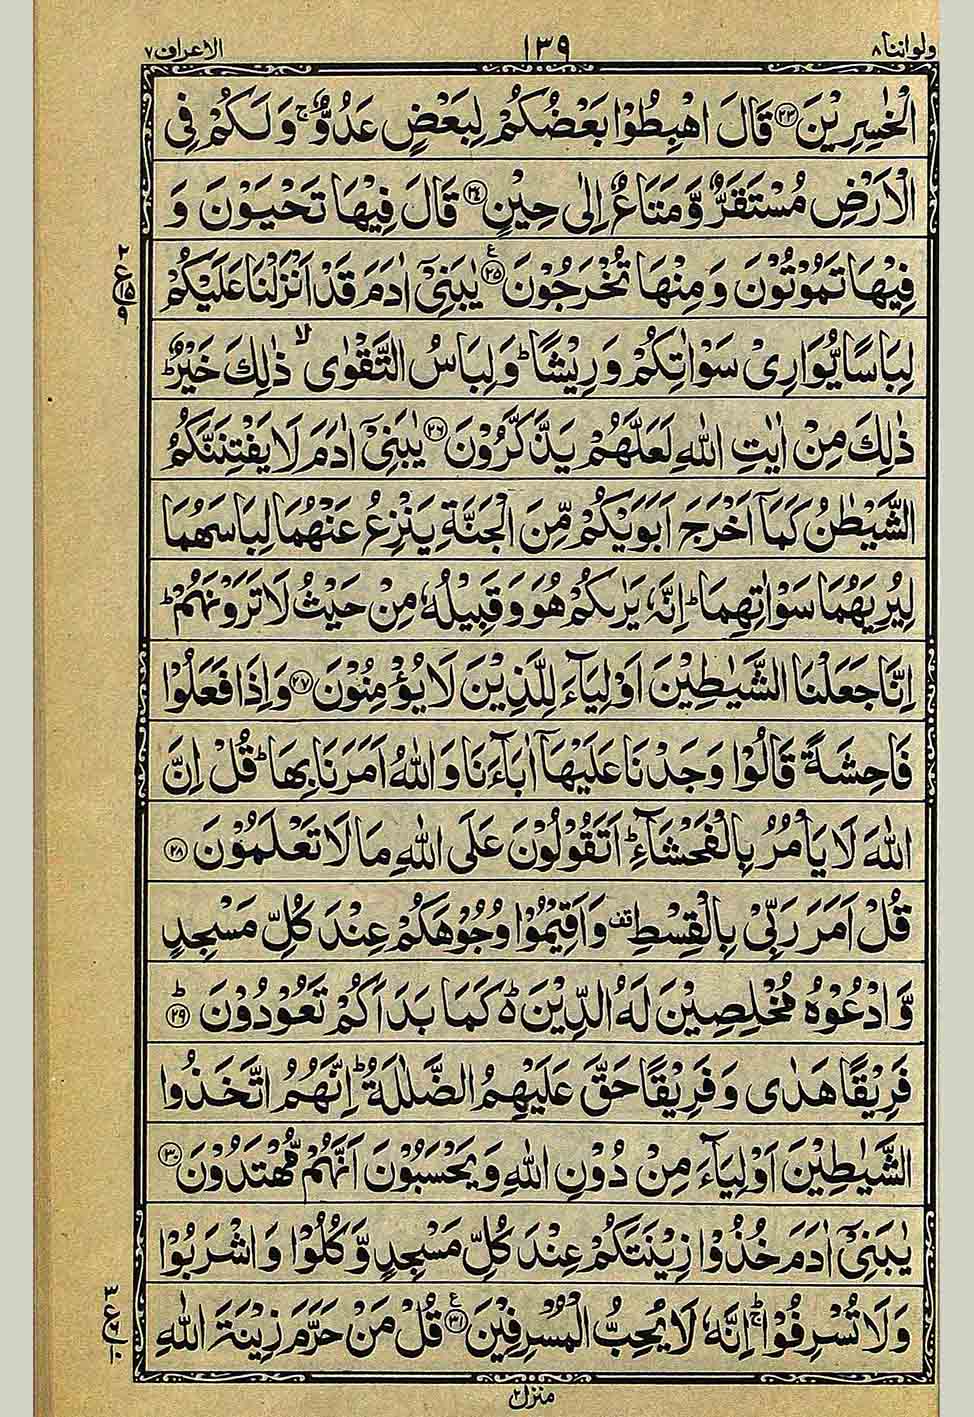 ولواننا ٨ ١٣٩ الاعراف ٧
الْخٰسِرِيْنَ ۝٢٣ قَالَ اهْبِطُوْا بَعْضُكُمْ لِبَعْضٍ عَدُوٌّ ۚ وَلَكُمْ فِى
الْاَرْضِ مُسْتَقَرٌّ وَّمَتَاعٌ اِلٰى حِيْنٍ ۝٢٤ قَالَ فِيْهَا تَحْيَوْنَ وَ
فِيْهَا تَمُوْتُوْنَ وَمِنْهَا تُخْرَجُوْنَ ۝٢٥ ع يٰبَنِىْٓ اٰدَمَ قَدْ اَنْزَلْنَا عَلَيْكُمْ
٢
ع ١٥
٩
لِبَاسًا يُّوَارِىْ سَوْاٰتِكُمْ وَرِيْشًا ؕ وَلِبَاسُ التَّقْوٰى ۙ ذٰلِكَ خَيْرٌ ؕ
ذٰلِكَ مِنْ اٰيٰتِ اللّٰهِ لَعَلَّهُمْ يَذَّكَّرُوْنَ ۝٢٦ يٰبَنِىْٓ اٰدَمَ لَا يَفْتِنَنَّكُمُ
الشَّيْطٰنُ كَمَآ اَخْرَجَ اَبَوَيْكُمْ مِّنَ الْجَنَّةِ يَنْزِعُ عَنْهُمَا لِبَاسَهُمَا
لِيُرِيَهُمَا سَوْاٰتِهِمَا ؕ اِنَّهٗ يَرٰىكُمْ هُوَ وَقَبِيْلُهٗ مِنْ حَيْثُ لَا تَرَوْنَهُمْ ؕ
اِنَّا جَعَلْنَا الشَّيٰطِيْنَ اَوْلِيَآءَ لِلَّذِيْنَ لَا يُؤْمِنُوْنَ ۝٢٧ وَاِذَا فَعَلُوْا
فَاحِشَةً قَالُوْا وَجَدْنَا عَلَيْهَآ اٰبَآءَنَا وَاللّٰهُ اَمَرَنَا بِهَا ؕ قُلْ اِنَّ
اللّٰهَ لَا يَاْمُرُ بِالْفَحْشَآءِ ؕ اَتَقُوْلُوْنَ عَلَى اللّٰهِ مَا لَا تَعْلَمُوْنَ ۝٢٨
قُلْ اَمَرَ رَبِّىْ بِالْقِسْطِ قف وَاَقِيْمُوْا وُجُوْهَكُمْ عِنْدَ كُلِّ مَسْجِدٍ
وَّادْعُوْهُ مُخْلِصِيْنَ لَهُ الدِّيْنَ ۬ؕ كَمَا بَدَاَكُمْ تَعُوْدُوْنَ ؕ ۝٢٩
فَرِيْقًا هَدٰى وَفَرِيْقًا حَقَّ عَلَيْهِمُ الضَّلٰلَةُ ؕ اِنَّهُمُ اتَّخَذُوا
الشَّيٰطِيْنَ اَوْلِيَآءَ مِنْ دُوْنِ اللّٰهِ وَيَحْسَبُوْنَ اَنَّهُمْ مُّهْتَدُوْنَ ۝٣٠
يٰبَنِىْٓ اٰدَمَ خُذُوْا زِيْنَتَكُمْ عِنْدَ كُلِّ مَسْجِدٍ وَّكُلُوْا وَاشْرَبُوْا
وَلَا تُسْرِفُوْا ۚ اِنَّهٗ لَا يُحِبُّ الْمُسْرِفِيْنَ ۝٣١ ع قُلْ مَنْ حَرَّمَ زِيْنَةَ اللّٰهِ
٣
ع
١٠
منزل ٢